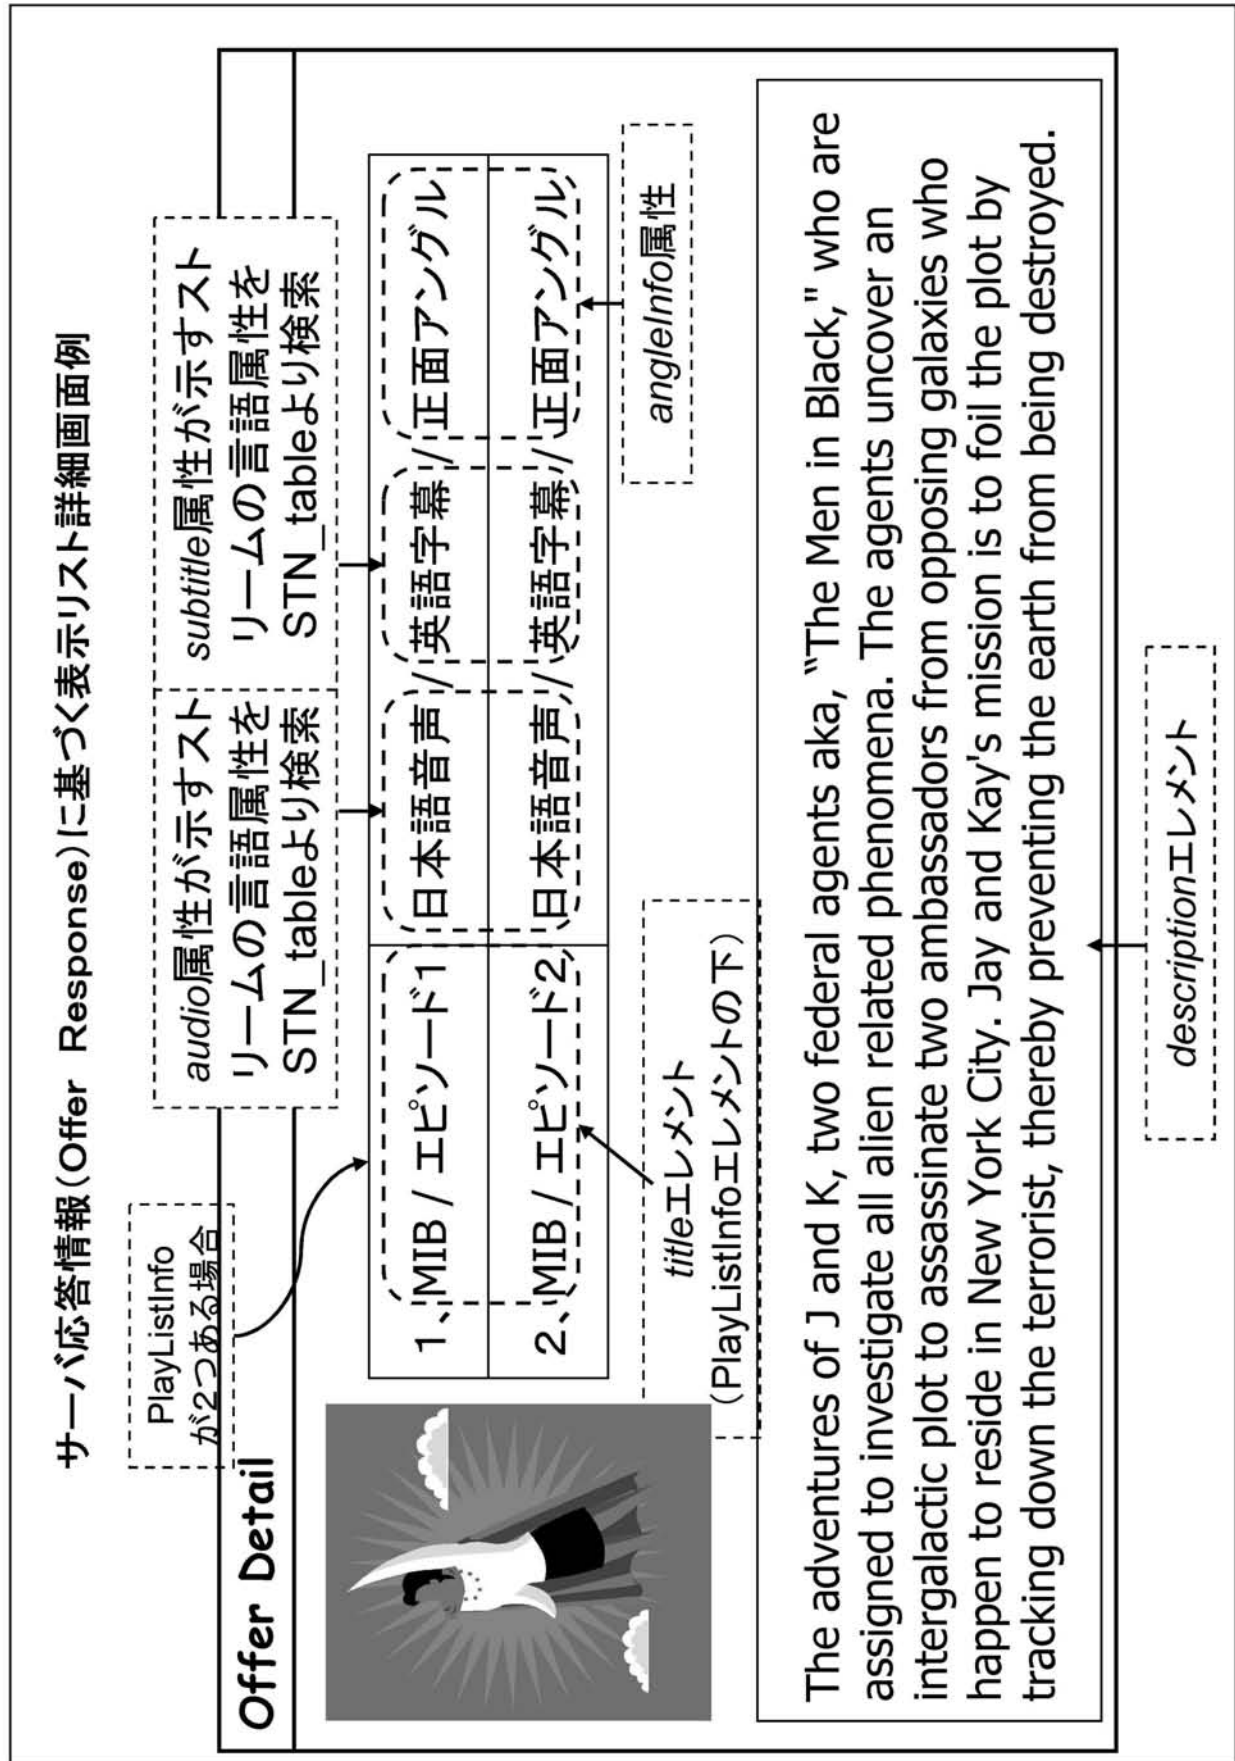 サーバ応答情報(Offer Response)に基づく表示リスト詳細画面例
PlayListInfo
が2つある場合
audio属性が示すスト
リームの言語属性を
STN_tableより検索
subtitle属性が示すスト
リームの言語属性を
STN_tableより検索
Offer Detail
1、MIB / エピソード1 日本語音声 / 英語字幕 / 正面アングル
2、MIB / エピソード2 日本語音声 / 英語字幕 / 正面アングル
titleエレメント
(PlayListInfoエレメントの下)
angleInfo属性
The adventures of J and K, two federal agents aka, "The Men in Black," who are
assigned to investigate all alien related phenomena. The agents uncover an
intergalactic plot to assassinate two ambassadors from opposing galaxies who
happen to reside in New York City. Jay and Kay's mission is to foil the plot by
tracking down the terrorist, thereby preventing the earth from being destroyed.
descriptionエレメント